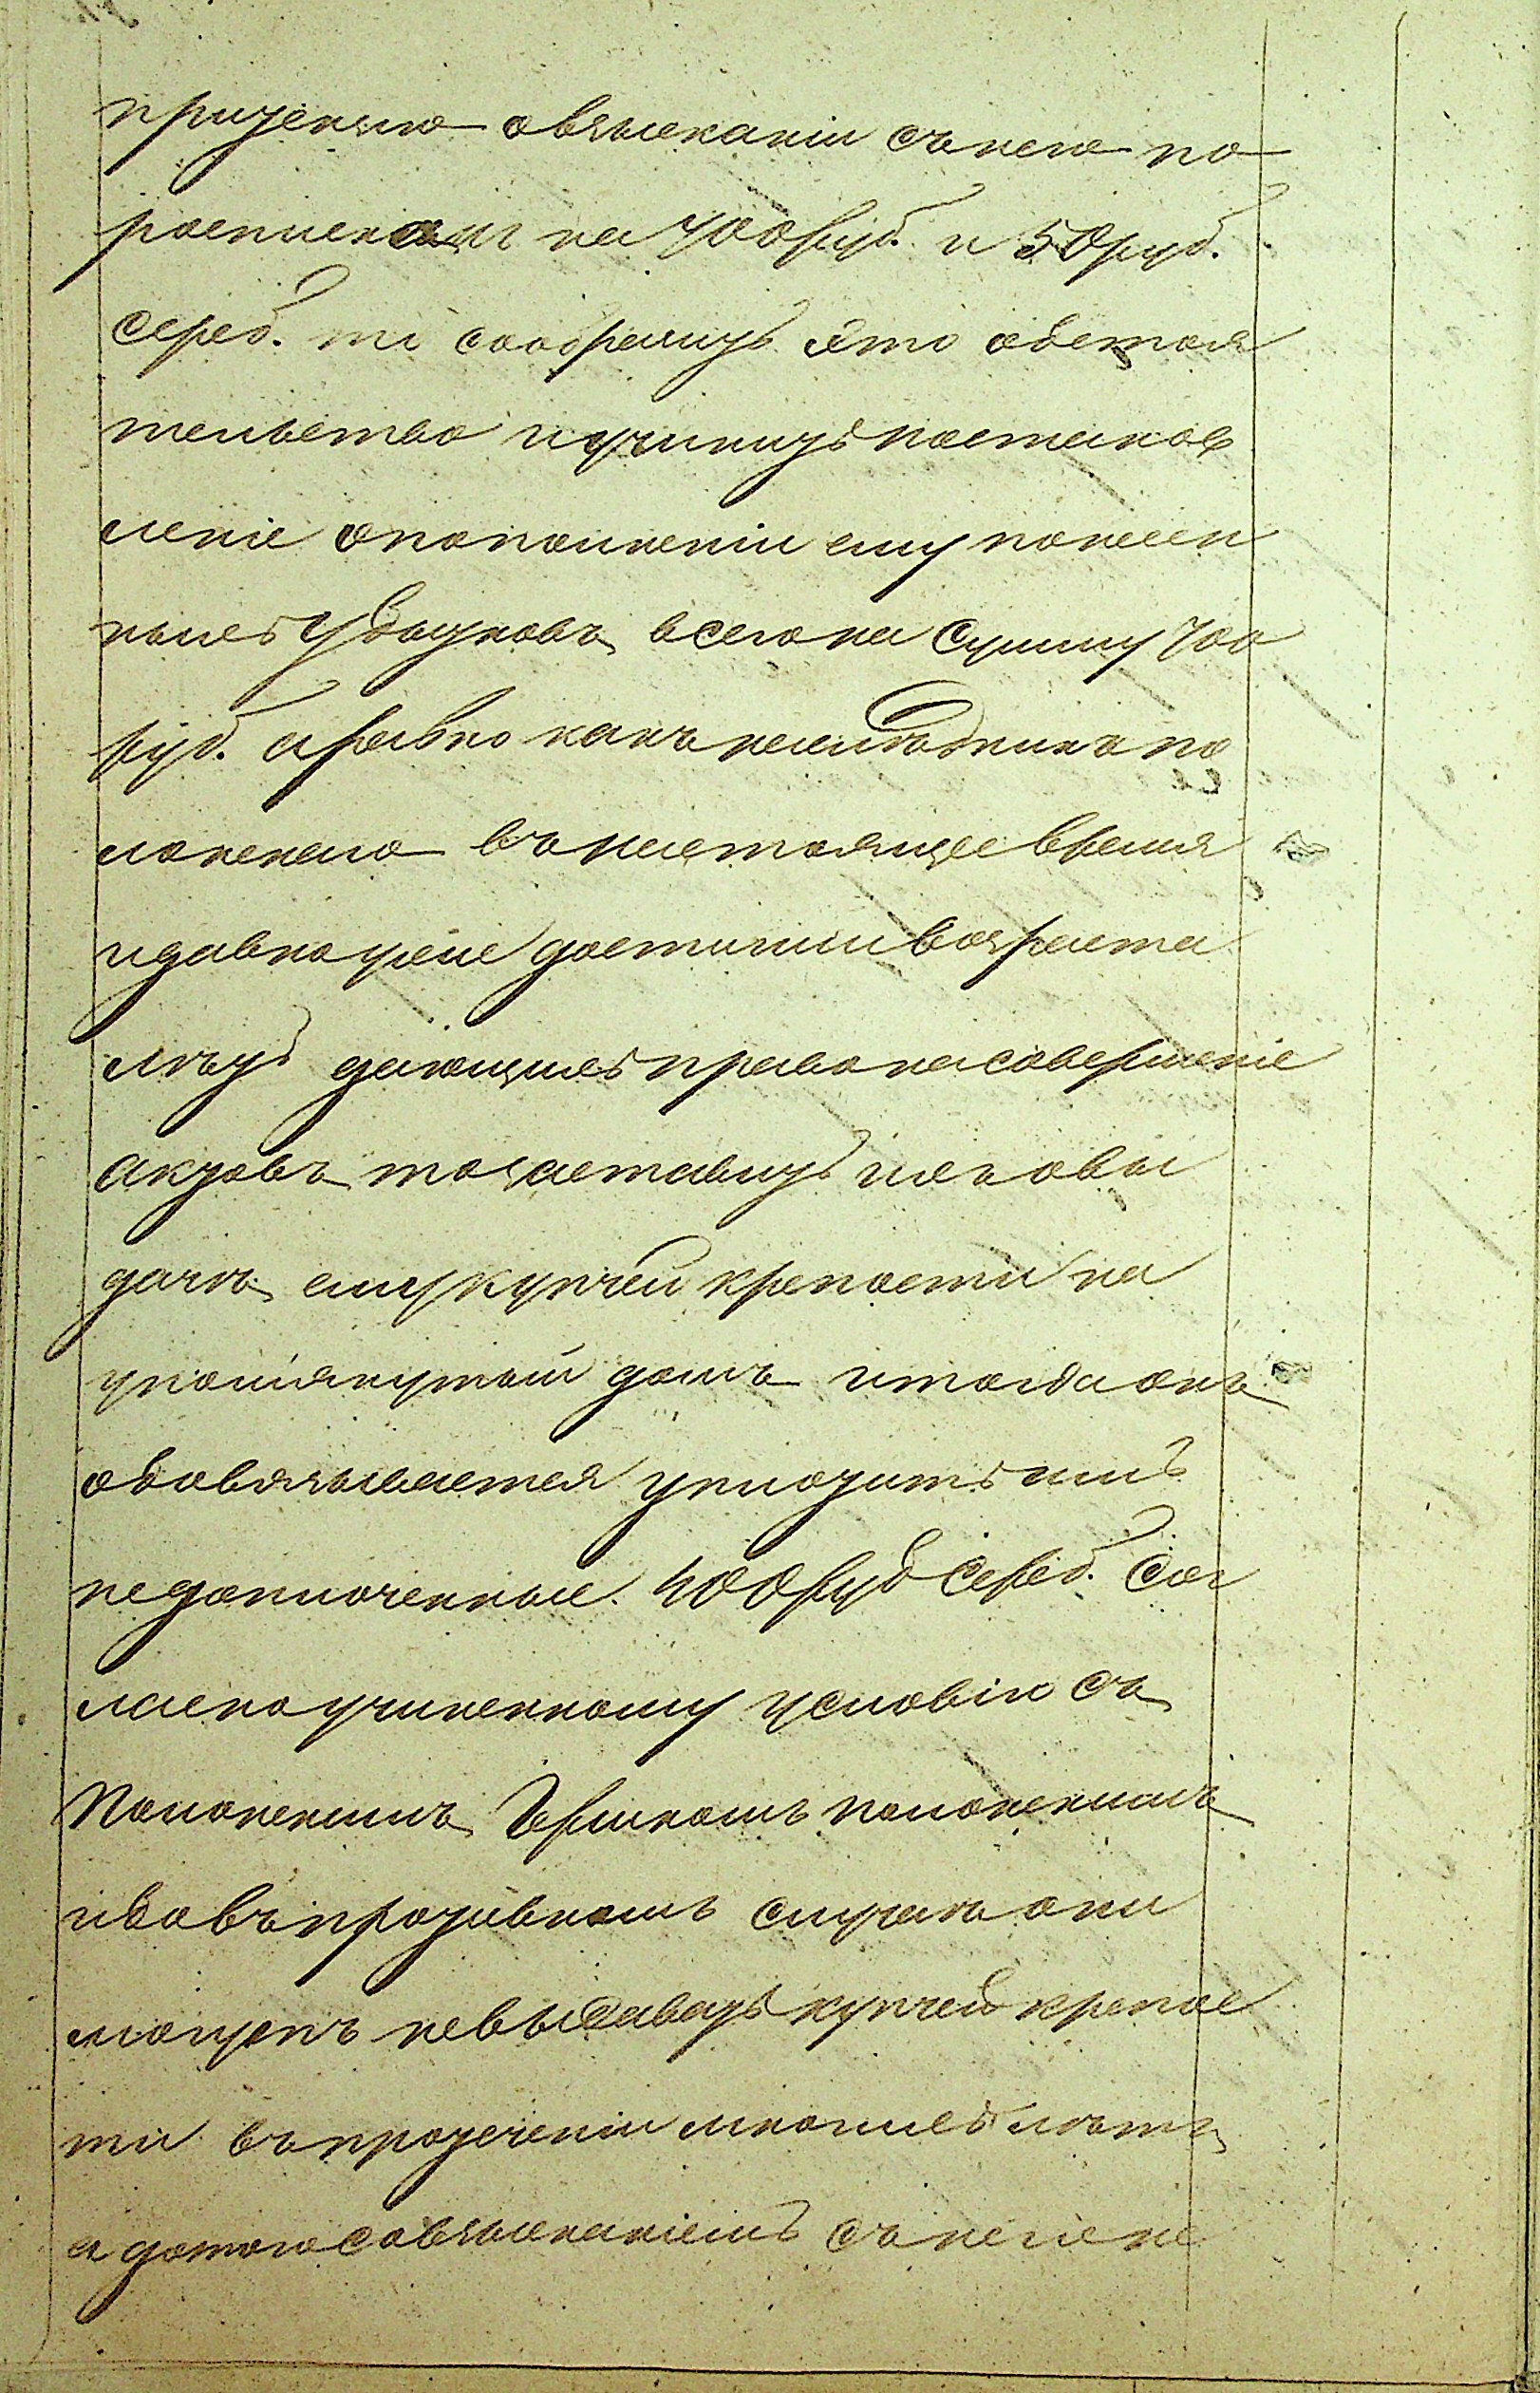 притензію овзысканіи снего по
роспискамъ на 700 руб. и 50 руб.
сереб. то сообразить это обстоя
тельство иучинить постанов
леніе опополненіи ему понесен
ныхъ убытковъ всего на Сумму 700
руб. а равно какъ наслѣдники по
ложенаго въ настоящее время
идавно уже достигли возраста
лѣтъ дающихъ право насовершеніе
актовъ то заставить ихъ овы
дачѣ ему купчей крепости на
упомянутый домъ итогда онъ
обовязывается уплотить имъ
недоплоченные 400 руб сереб. Сог
ласно учиненному условію съ
Положенимъ Гершкомъ положенимъ
ибо въ противномъ случаѣ они
могутъ невыдавать купчей крепос
ти въ протеченіи многихъ лѣтъ
а дотого совзысканіемъ снего не